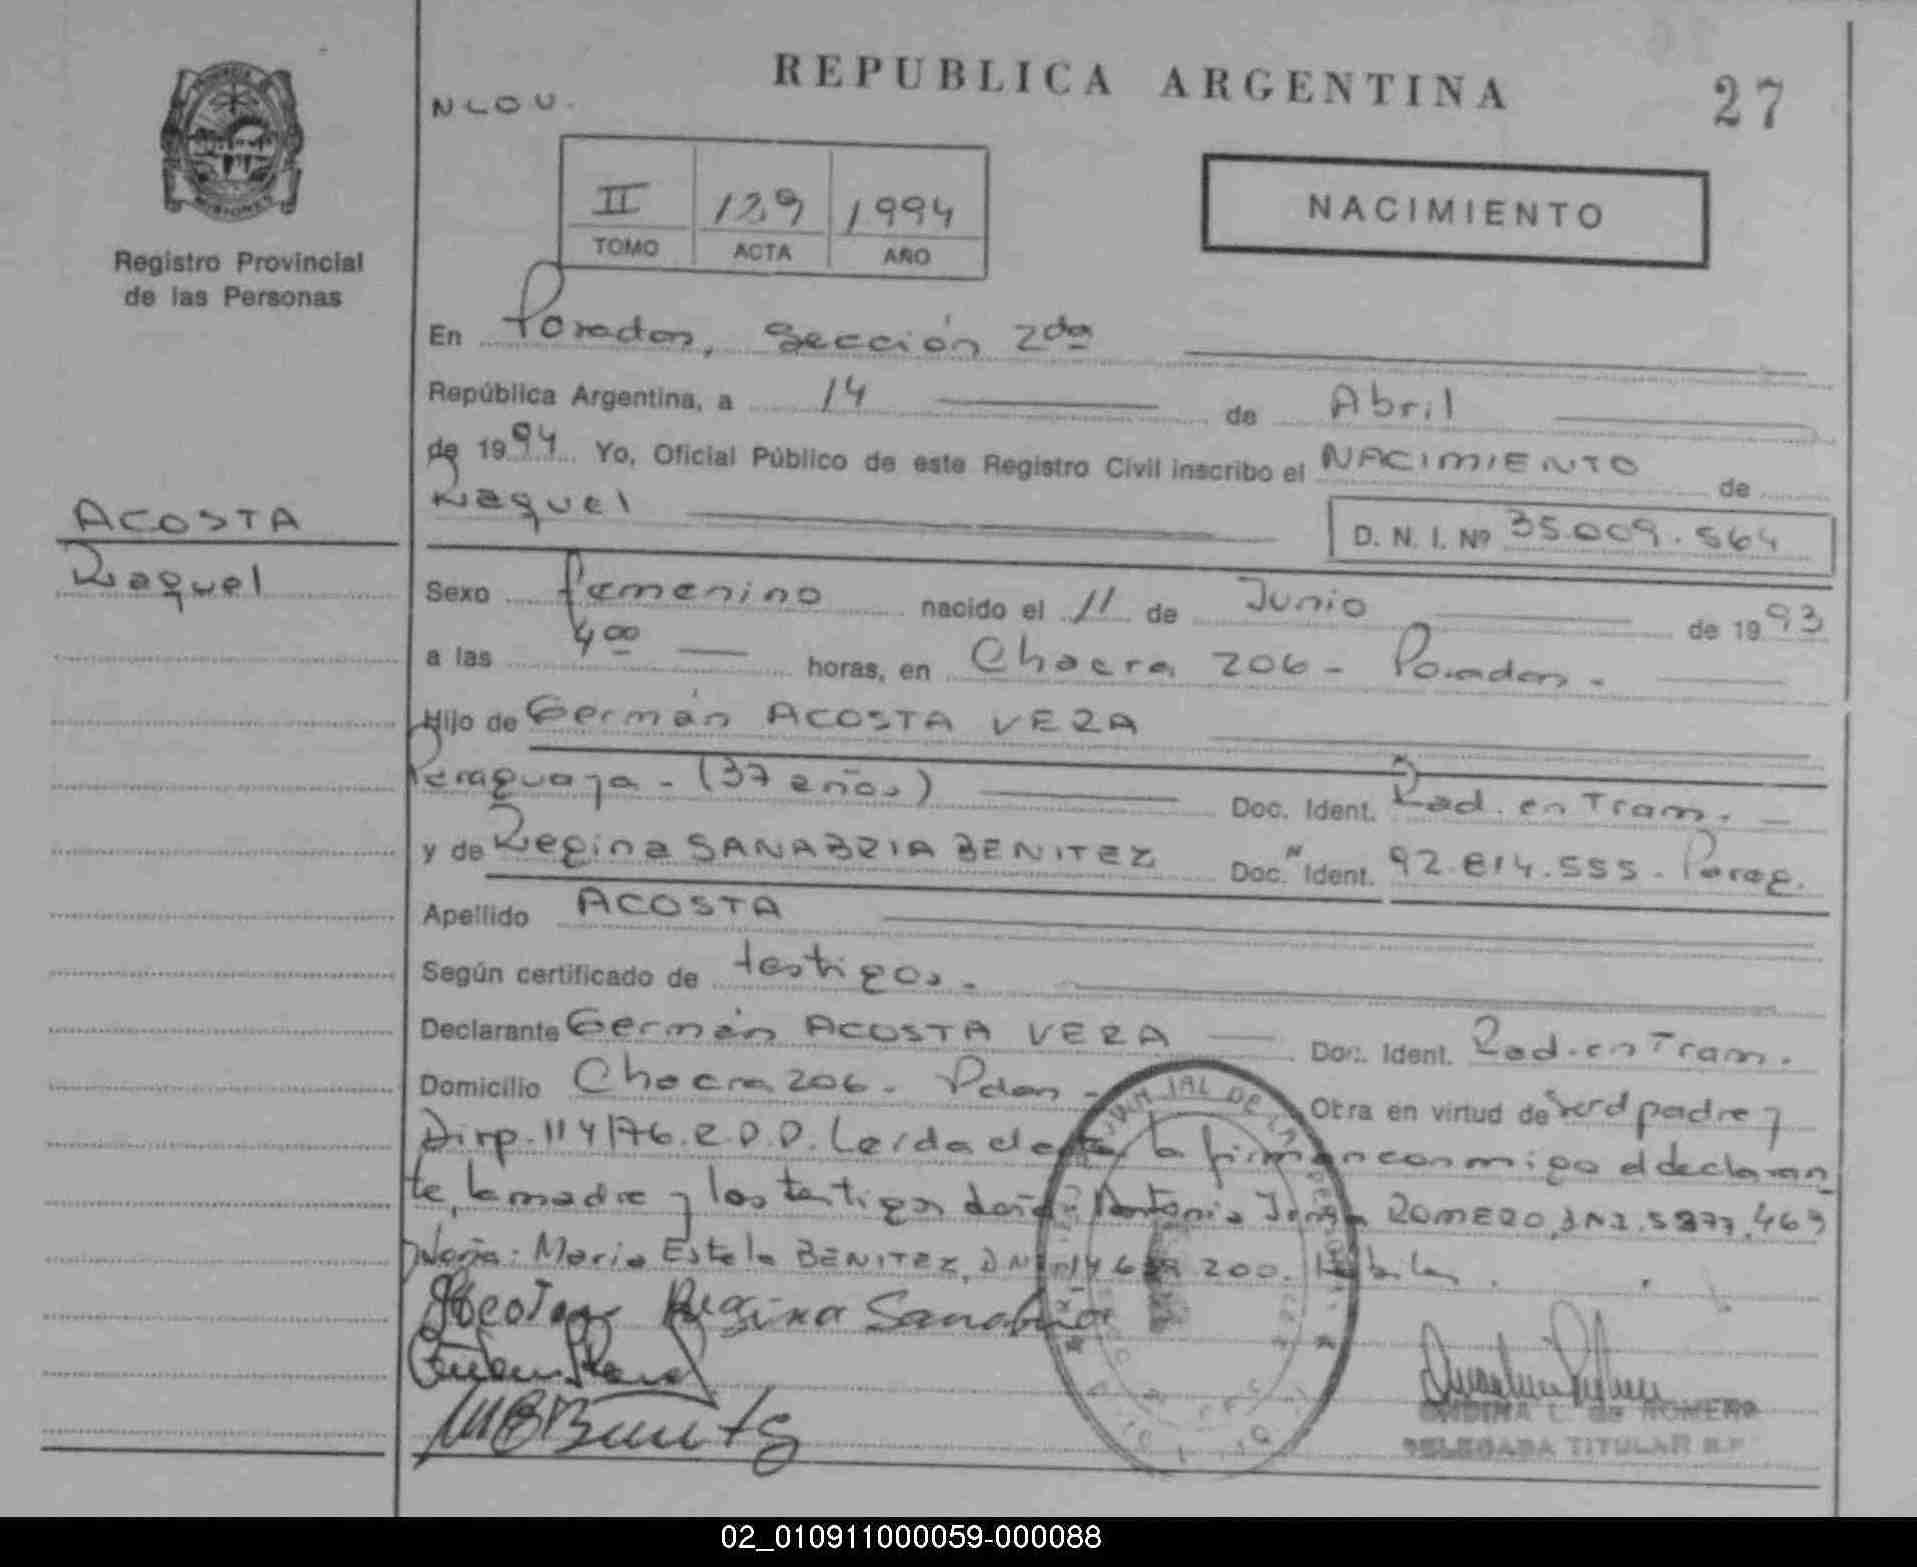 REPUBLICA ARGENTINA
27
NLOU.
II 129 1994
TOMO ACTA AÑO
NACIMIENTO
MISIONES
Registro Provincial
de las Personas
ACOSTA
Raquel
En Posadas, Sección 2da
República Argentina, a 14 de Abril
de 1994 Yo, Oficial Público de este Registro Civil inscribo el NACIMIENTO de
Raquel D. N. I. Nº 35.009.564
Sexo femenino nacido el 11 de Junio de 1993
a las 4 00 horas, en Chacra 206 - Posadas -
Hijo de Germán ACOSTA VERA
Paraguaya - (37 años) Doc. Ident. Rad. en Tram.
y de Regina SANABRIA BENITEZ Doc. Ident. 92.814.555. Parag.
Apellido ACOSTA
Según certificado de testigos.
Declarante Germán ACOSTA VERA Doc. Ident. Rad. en Tram.
Domicilio Chacra 206 - Pdas - Otra en virtud de ser el padre y
Disp. 114/76. R.D.D. Leída el acta la firman conmigo el declaran
te, la madre y los testigos doña: Antonia ROMERO, DNI. 469
y doña: Maria Estela BENITEZ, DNI 14 200. Hábiles.
Regina Sanabria
MEBenitez
ONDINA L. de ROMERO
DELEGADA TITULAR R.P.
02_010911000059-000088